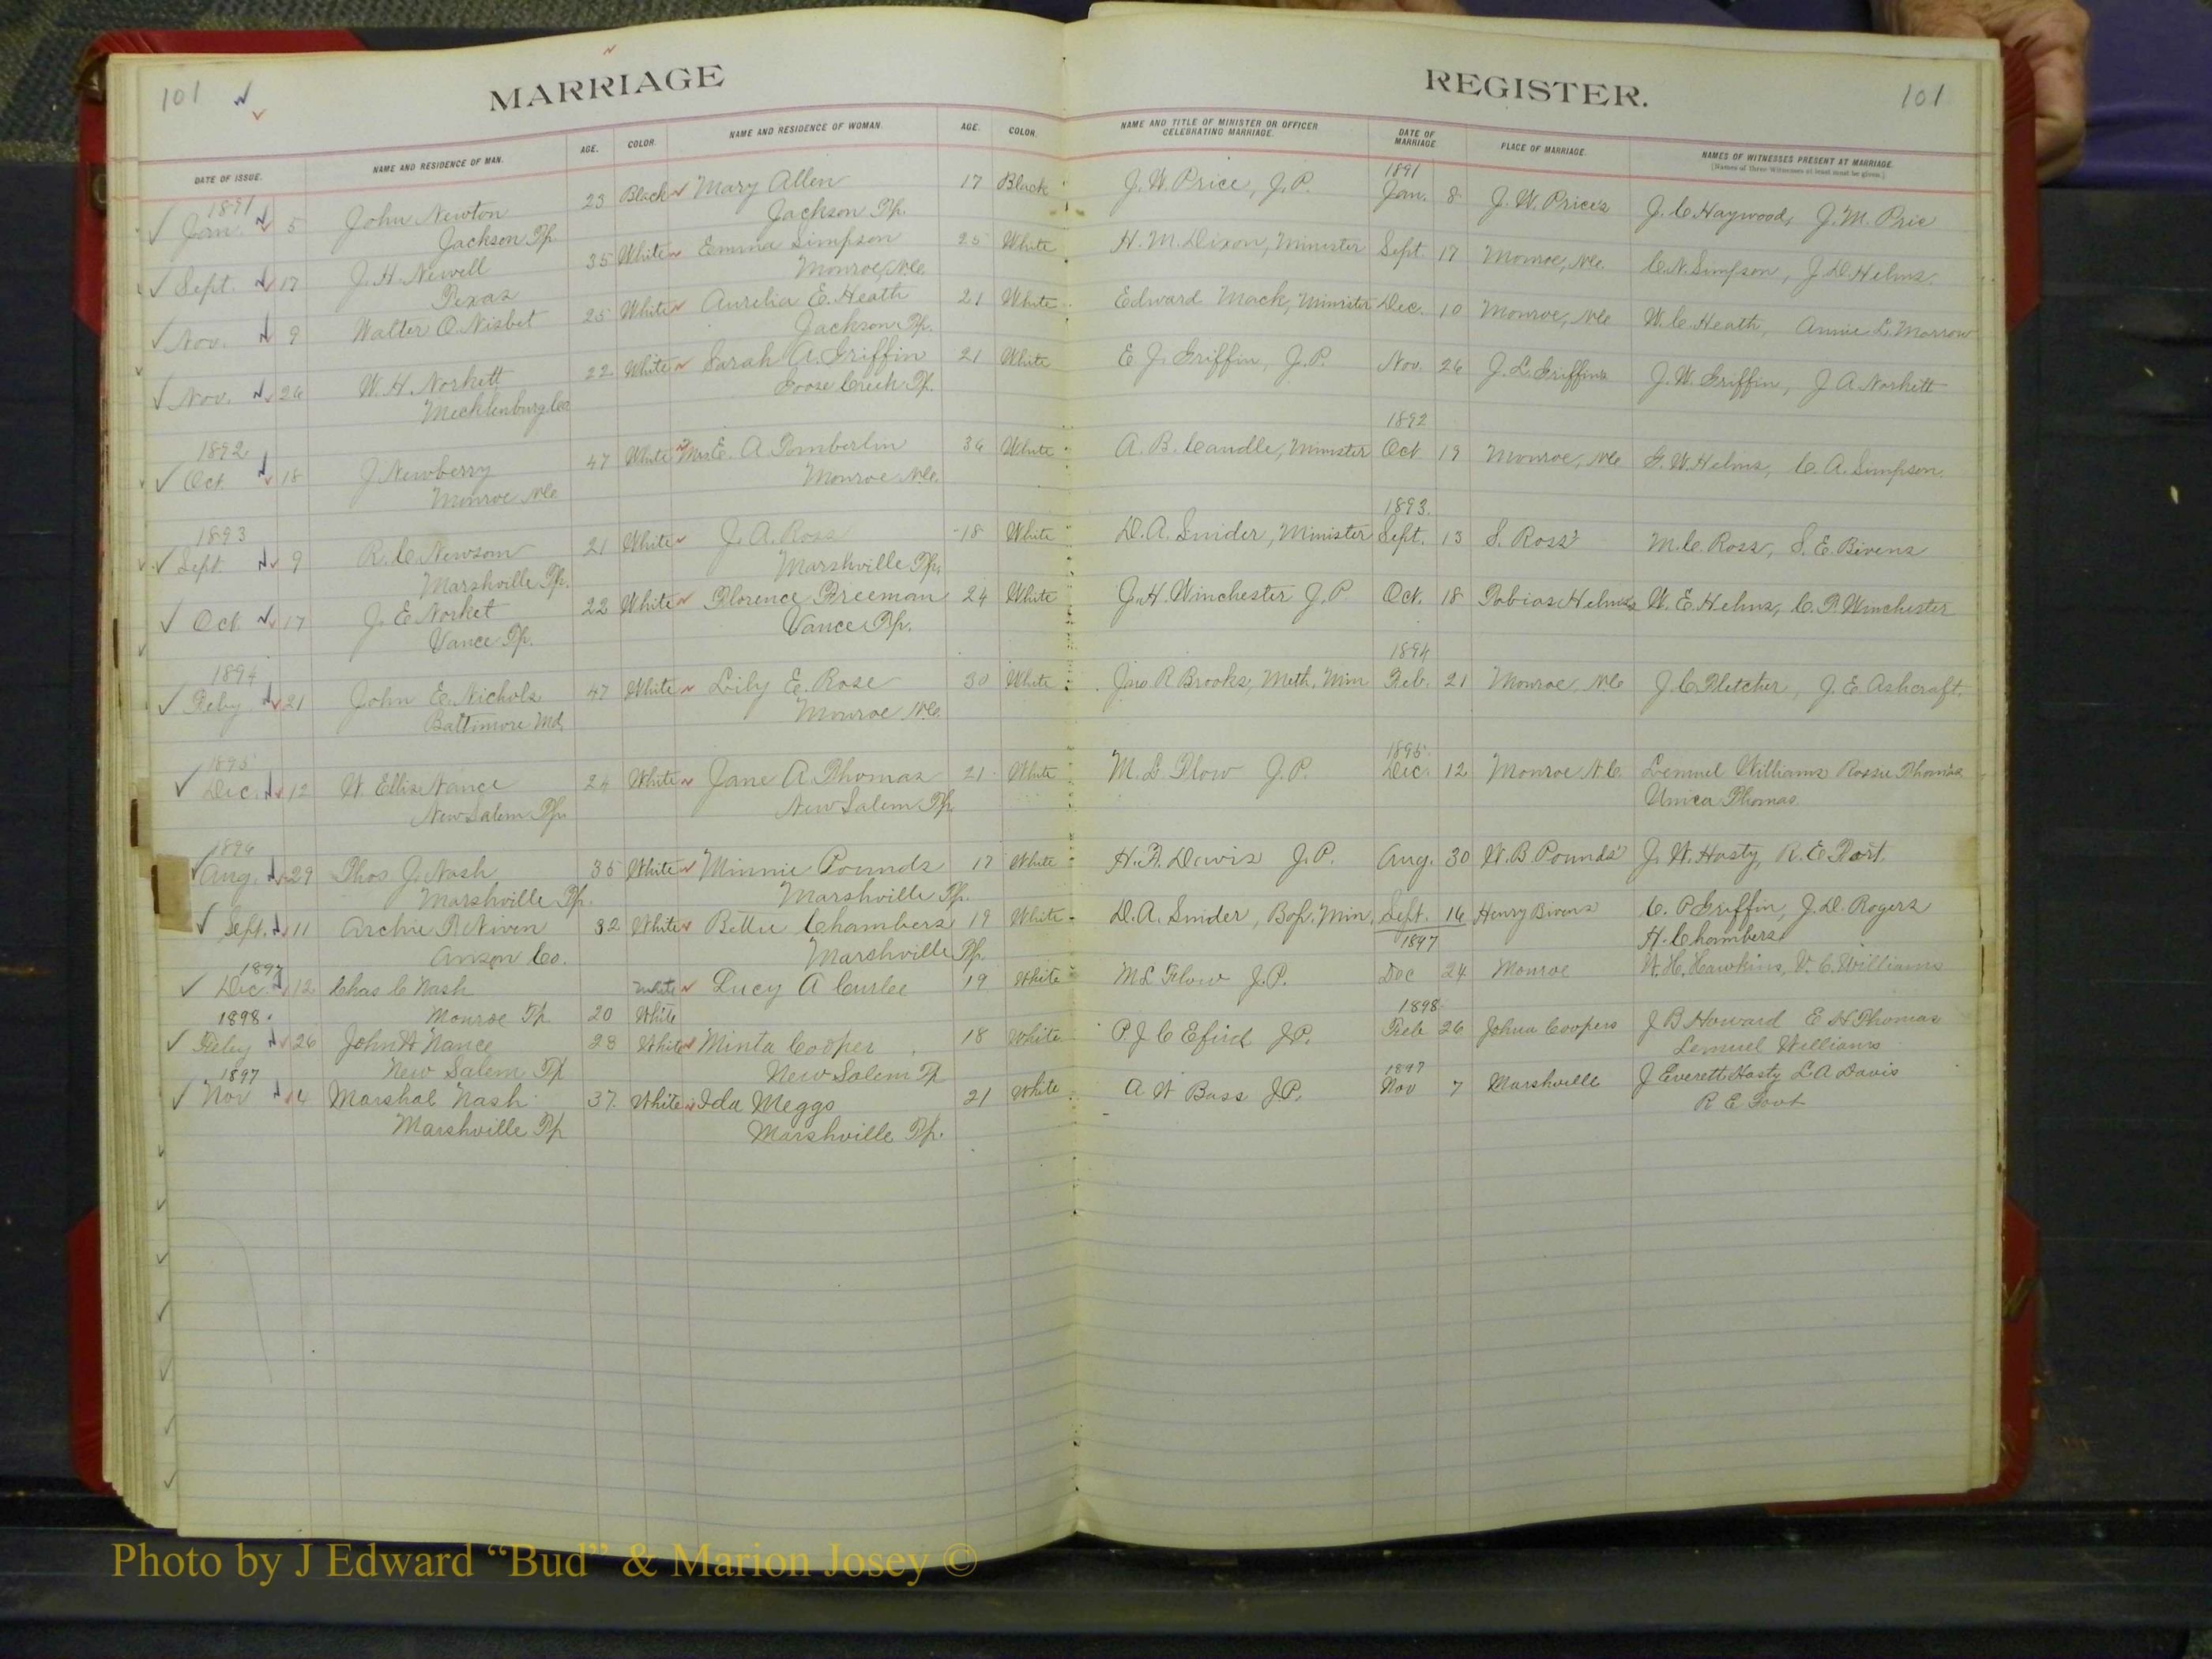 101
MARRIAGE
DATE OF ISSUE. NAME AND RESIDENCE OF MAN. AGE. COLOR. NAME AND RESIDENCE OF WOMAN. AGE. COLOR.
1891
Jan. 5 John Newton 23 Black Mary Allen 17 Black
Jackson Tp. Jackson Tp.
Sept. 17 J. H. Newell 35 White Emma Simpson 25 White
Texas Monroe, N.C.
Nov. 9 Walter O. Nisbet 25 White Aurelia E. Heath 21 White
Jackson Tp.
Nov. 26 W. H. Norkett 22 White Sarah A. Griffin 21 White
Mecklenburg Co. Goose Creek Tp.
1892
Oct. 18 J Newberry 47 White Mrs E. A Tomberlin 36 White
Monroe N.C. Monroe N.C.
1893
Sept. 9 R. C. Newsom 21 White J. A. Ross 18 White
Marshville Tp. Marshville Tp.
Oct. 17 J. E. Norket 22 White Florence Freeman 24 White
Vance Tp. Vance Tp.
1894
Feby 21 John E. Nichols 47 White Lily E. Rose 30 White
Baltimore Md. Monroe N.C.
1895
Dec. 12 W Ellis Nance 24 White Jane A. Thomas 21 White
New Salem Tp. New Salem Tp.
1896
Aug. 29 Thos J. Nash 35 White Minnie Pounds 17 White
Marshville Tp. Marshville Tp.
Sept. 11 Archie R Niven 32 White Bettie Chambers 19 White
Anson Co. Marshville Tp.
1897
Dec 12 Chas C Nash White Lucy A Curlee 19 White
1898. Monroe Tp 20 White
Feby 26 John W Nance 28 White Minta Cooper 18 White
New Salem Tp New Salem Tp
1897
Nov 4 Marshal Nash 37 White Ida Meggs 21 White
Marshville Tp Marshville Tp.
REGISTER.
101
NAME AND TITLE OF MINISTER OR OFFICER CELEBRATING MARRIAGE. DATE OF MARRIAGE. PLACE OF MARRIAGE. NAMES OF WITNESSES PRESENT AT MARRIAGE.
[Names of Three Witnesses at least must be given.]
1891
J. W. Price, J. P. Jan. 8 J. W. Price's J. C. Haywood, J. M. Pric
H. M. Dixon, Minister Sept. 17 Monroe, N.C. C. N. Simpson, J. D. Helms.
Edward Mack, Minister Dec. 10 Monroe, N.C. W. C. Heath, Annie L. Morrow
E. J. Griffin, J. P. Nov. 26 J. L. Griffins J. W. Griffin, J. A. Norkett
1892
A. B. Caudle, Minister Oct 19 Monroe, N.C. G. W. Helms, C. A. Simpson.
1893.
D. A. Snider, Minister Sept. 13 S. Ross' M. C. Ross, S. E. Bivens
J. H. Winchester J. P. Oct. 18 Tobias Helms W. E. Helms, C. P. Winchester
1894
Jno R Brooks, Meth. Min Feb. 21 Monroe, N.C. J. C. Fletcher, J. E. Ashcraft.
1895.
M. L. Flow J. P. Dec. 12 Monroe N.C. Lemuel Williams Rossie Thomas
Unica Thomas.
H. F. Davis J. P. Aug. 30 W. B Pounds' J. W. Hasty, R. E.
D. A. Snider, Bap. Min. Sept. 16 Henry Bivens C. P Griffin, J. D. Rogers
1897 H. Chambers
M L Flow J. P. Dec 24 Monroe W. H. Hawkins, V. C. Williams
1898.
P. J C Efird J. P. Feb 26 Johua Coopers J B Howard E H Thomas
Lemuel Williams
1897
A W Bass J. P. Nov 7 Marshville J Everett Hasty L A Davis
R E
Photo by J Edward “Bud” & Marion Josey ©